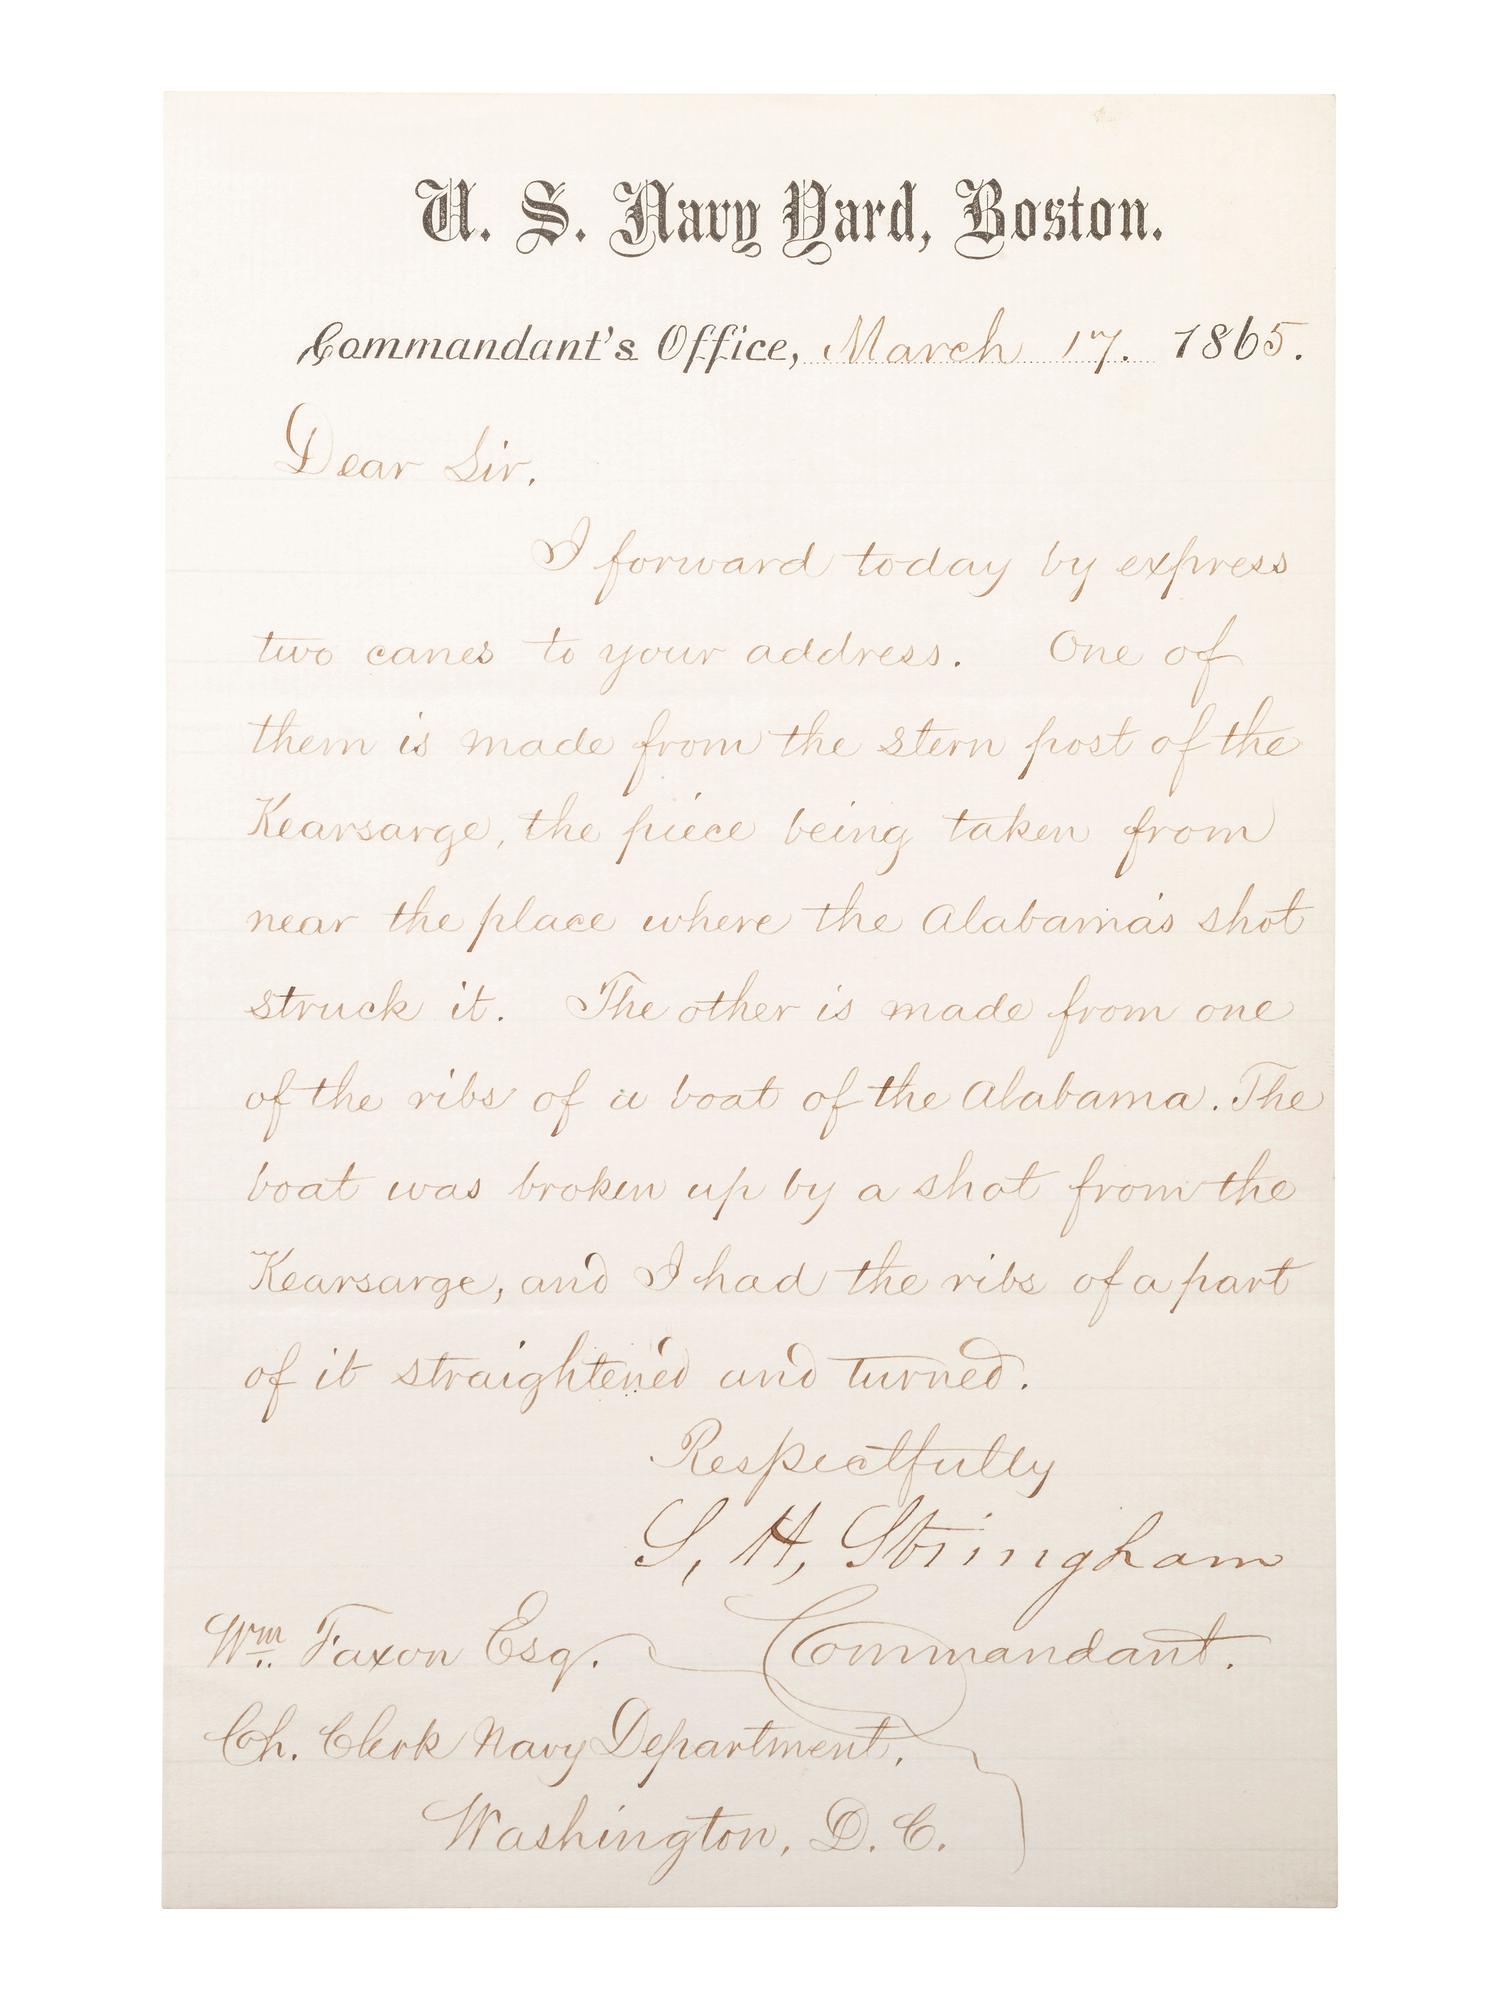 U. S. Navy Yard, Boston.
Commandant's Office, March 17. 1865.
Dear Sir,
I forward today by express
two canes to your address. One of
them is made from the stern post of the
Kearsarge, the piece being taken from
near the place where the Alabama's shot
struck it. The other is made from one
of the ribs of a boat of the Alabama. The
boat was broken up by a shot from the
Kearsarge, and I had the ribs of a part
of it straightened and turned.
Respectfully
S, H, Stringham
Wm. Faxon Esq. Commandant.
Ch. Clerk Navy Department,
Washington, D. C.